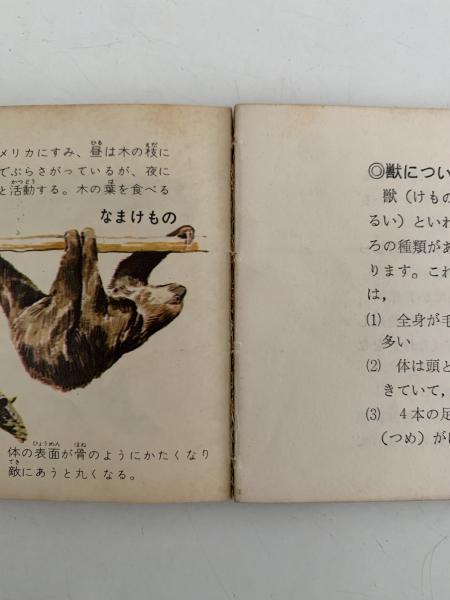 メリカにすみ、昼は木の枝に
でぶらさがっているが、夜に
と活動する。木の葉を食べる
なまけもの
体の表面が骨のようにかたくなり
敵にあうと丸くなる。
◎獣につい
獣（けもの
るい）といわ
ろの種類があ
ります。これ
は，
⑴ 全身が毛
多い
⑵ 体は頭と
きていて，
⑶ ４本の足
（つめ）が